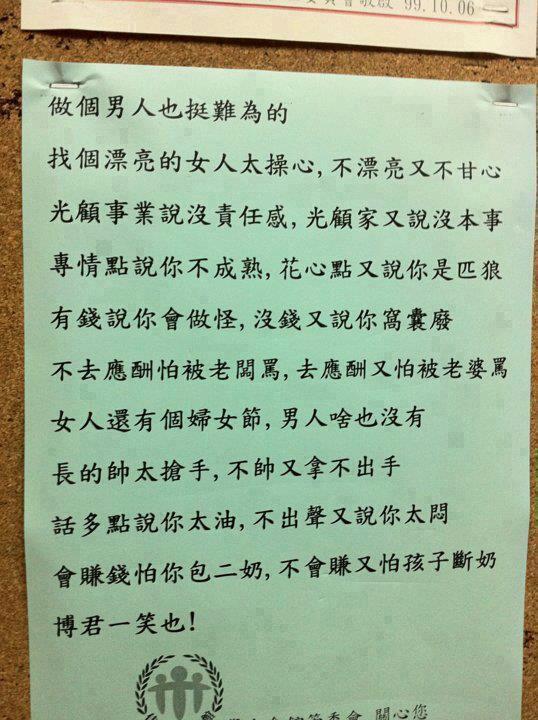 會敬啟 99.10.06
做個男人也挺難為的
找個漂亮的女人太操心,不漂亮又不甘心
光顧事業說沒責任感,光顧家又說沒本事
專情點說你不成熟,花心點又說你是匹狼
有錢說你會做怪,沒錢又說你窩囊廢
不去應酬怕被老闆罵,去應酬又怕被老婆罵
女人還有個婦女節,男人啥也沒有
長的帥太搶手,不帥又拿不出手
話多點說你太油,不出聲又說你太悶
會賺錢怕你包二奶,不會賺又怕孩子斷奶
博君一笑也!
委會 關心您